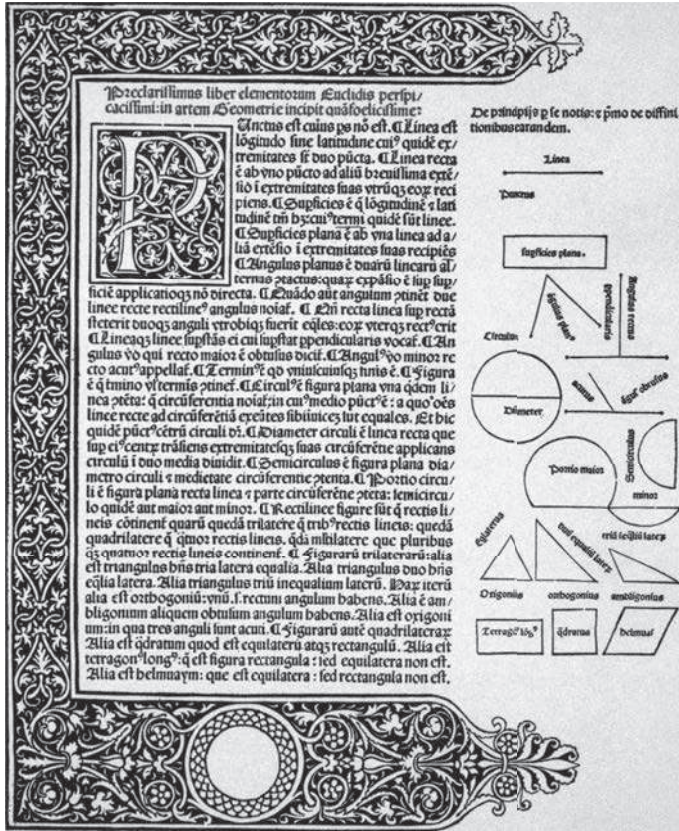 Preclarissimus liber elementorum Euclidis perspi/
cacissimi: in artem Geometrie incipit quãfoelicissime:
PUnctus est cuius ps nõ est. ¶ Linea est
lõgitudo sine latitudine cuiꝰ quidẽ ex/
tremitates sũt duo pũcta. ¶ Linea recta
ẽ ab vno pũcto ad aliũ breuissima extẽ/
sio ĩ extremitates suas vtrũqꝫ eoꝝ reci
piens. ¶ Supficies ẽ q̃ lõgitudinẽ ⁊ lati
tudinẽ tm̃ hꝫ: cuiꝰ termi quidẽ sũt linee.
¶ Supficies plana ẽ ab vna linea ad a/
liã extẽsio ĩ extremitates suas recipiẽs
¶ Angulus planus ẽ duarũ linearũ al/
ternus ptactus: quaꝝ expãsio ẽ sup sup/
ficiẽ applicatioqꝫ nõ directa. ¶ Quãdo aũt angulum ptinẽt due
linee recte rectilineꝰ angulus noiaꞇ̃. ¶ Qñ recta linea sup rectã
steterit duoqꝫ anguli vtrobiqꝫ fuerit eq̃les: eoꝝ vterqꝫ rectꝰ erit
¶ Lineaqꝫ linee supstãs ei cui supstat ppendicularis vocaꞇ̃. ¶ An
gulus ṽo qui recto maior ẽ obtusus diciꞇ̃. ¶ Angulꝰ ṽo minor re
cto acutꝰ appellaꞇ̃. ¶ Terminꝰ ẽ qd vniuscuiusqꝫ finis ẽ. ¶ Figura
ẽ q̃ tmino vl̃ termĩs ptineꞇ̃. ¶ Circulꝰ ẽ figura plana vna q̃dem li/
nea ptẽta: q̃ circũferentia noiaꞇ̃: in cuiꝰ medio pũctꝰ ẽ: a quo oẽs
linee recte ad circũferẽtiã exeũtes sibiiuicẽ sũt equales. Et hic
quidẽ pũctꝰ cẽtrũ circuli dꝛ̃. ¶ Diameter circuli ẽ linea recta que
sup eiꝰ centꝝ trãsiens extremitatesqꝫ suas circũferẽtie applicans
circulũ ĩ duo media diuidit. ¶ Semicirculus ẽ figura plana dia/
metro circuli ⁊ medietate circũferentie ptenta. ¶ Portio circu/
li ẽ figura plana recta linea ⁊ parte circũferẽtie pteta: semicircu/
lo quidẽ aut maior aut minor. ¶ Rectilinee figure sũt q̃ rectis li/
neis cõtinenꞇ̃ quarũ quedã trilatere q̃ tribꝰ rectis lineis: quedã
quadrilatere q̃ qtuor rectis lineis. q̃dã mltilatere que pluribus
qꝫ quatuor rectis lineis continenꞇ̃. ¶ Figurarũ trilaterarũ: alia
est triangulus hñs tria latera equalia. Alia triangulus duo hñs
eq̃lia latera. Alia triangulus triũ inequalium laterũ. Haꝝ iterũ
alia est orthogoniũ: vnũ .s. rectum angulum habens. Alia ẽ am/
bligonium aliquem obtusum angulum habens. Alia est oxigoni
um: in qua tres anguli sunt acuti. ¶ Figurarũ aũt quadrilateraꝝ
Alia est q̃dratum quod est equilaterũ atqꝫ rectangulũ. Alia est
tetragonꝰ longꝰ: q̃ est figura rectangula: sed equilatera non est.
Alia est helmuaym: que est equilatera: sed rectangula non est.
De principijs p se notis: ⁊ pmo de diffini
tionibus earandem.
Linea
Punctus
supficies plana.
ãgulus planꝰ
ppendicularis
Angulus rectus
Circulus
Diameter
acutus
ãgulꝰ obtusus
Portio maior
Semicirculus
minor
Eqlaterus
duũ equaliũ laterũ
triũ ieq̃liũ lateꝝ
Oxigonius
orthogonius
ambligonius
Tetragonꝰ lõgꝰ
q̃dratus
helmuaꞇ̃